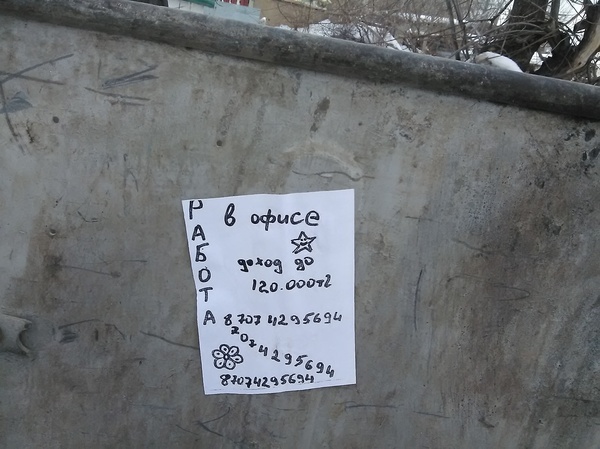 РАБОТА
в офисе
доход до
120.000тг
8707 4295694
707 4295694
87074295694